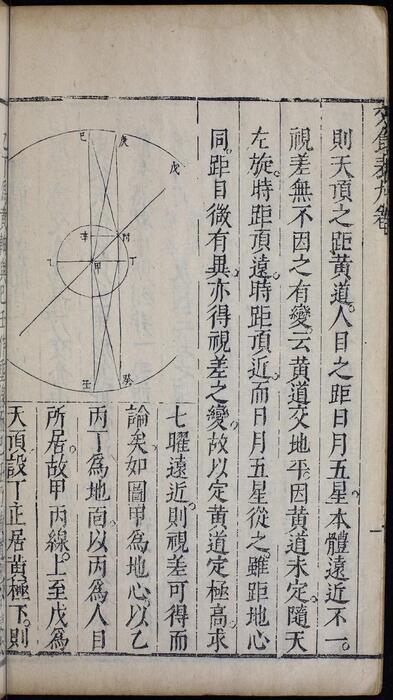 則天頂之距黃道。人目之距日月五星本體遠近不一。
視差無不因之有變。云黃道交地平。因黃道未定隨天
左旋。時距頂遠。時距頂近。而日月五星從之。雖距地心
同。距目微有異。亦得視差之變。故以定黃道定極高。求
七曜遠近。則視差可得而
論矣。如圖甲為地心。以乙
丙丁為地面。以丙為人目
所居。故甲丙線。上至戊為
天頂。設丁正居黃極下。則
巳
庚
戊
辛
丙
乙
甲
丁
壬
癸